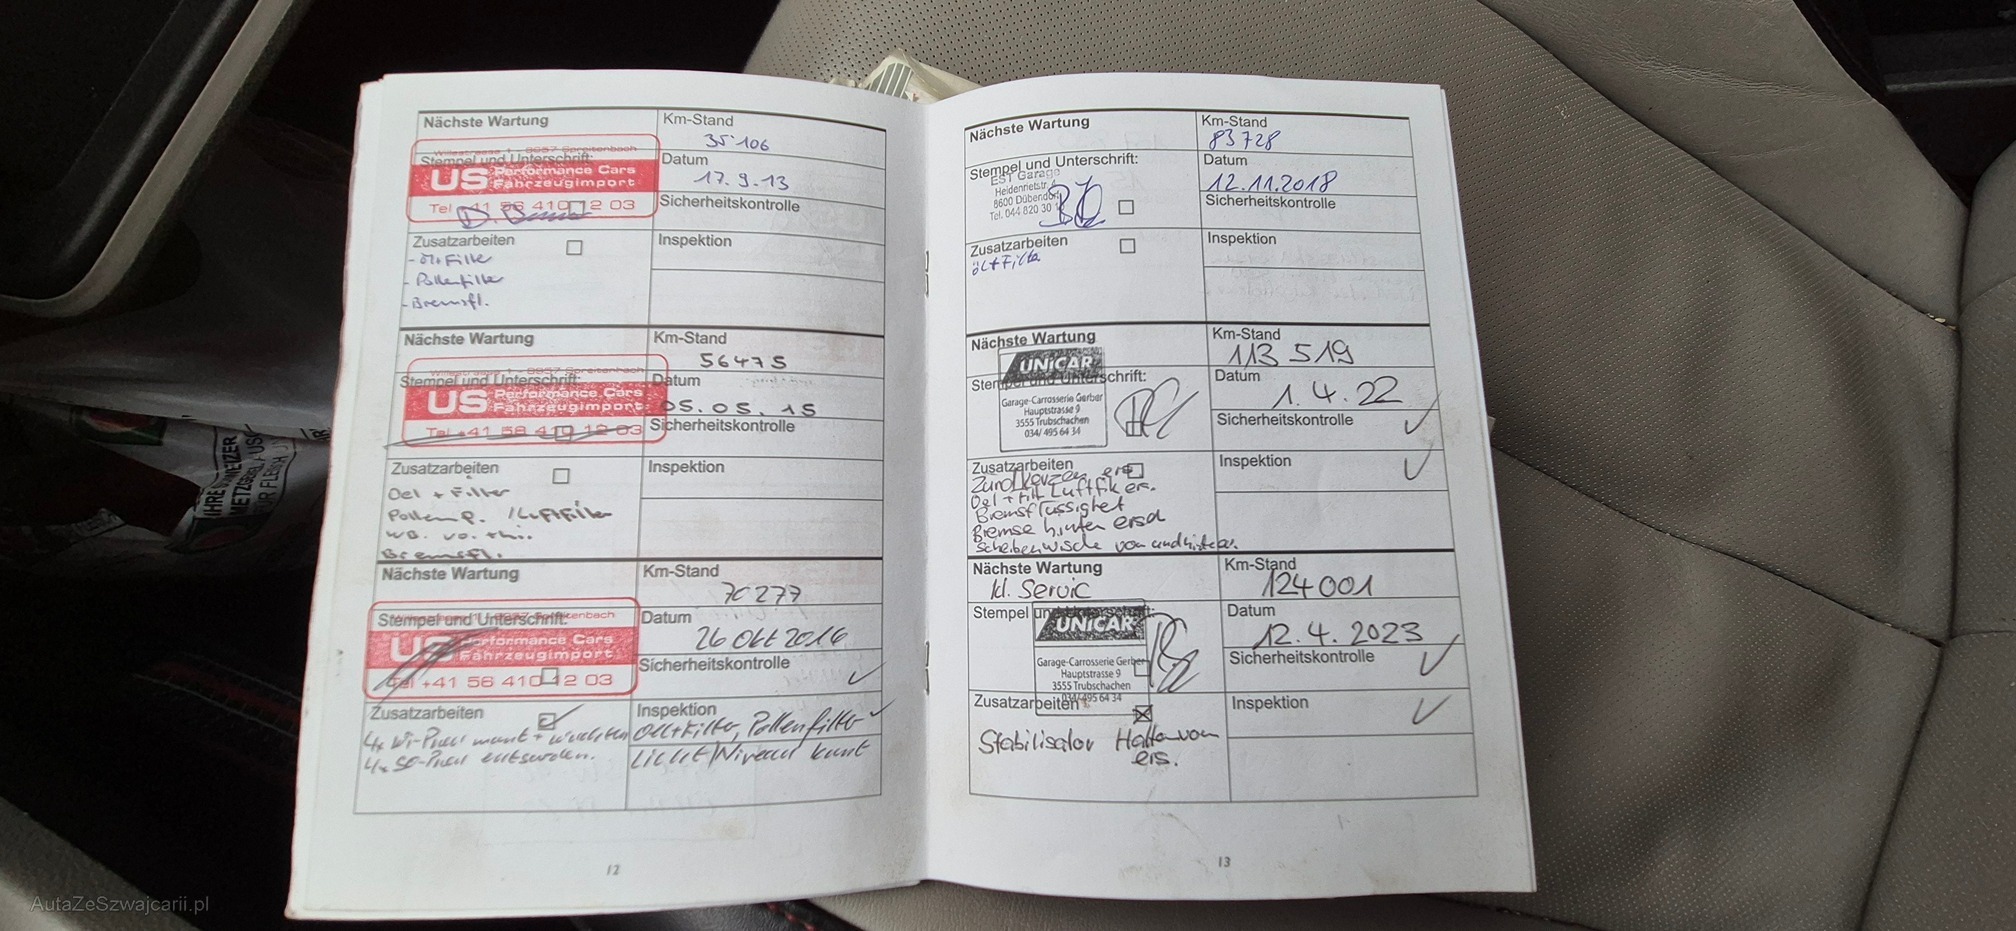 Nächste Wartung
Km-Stand
35'106
Stempel und Unterschrift:
8957 Spreitenbach
US Performance Cars
Fahrzeugimport
Tel +41 56 410 12 03
Datum
17.9.13
Sicherheitskontrolle
Zusatzarbeiten
- Öl+Filter
- Pollenfilter
- Bremsfl.
Inspektion
Nächste Wartung
Km-Stand
56475
Stempel und Unterschrift:
8957 Spreitenbach
US Performance Cars
Fahrzeugimport
Tel +41 56 410 12 03
Datum
05.05.15
Sicherheitskontrolle
Zusatzarbeiten
Oel + Filter
Pollen F. / Luftfilter
Bremsfl.
Inspektion
Nächste Wartung
Km-Stand
70277
Stempel und Unterschrift:
8957 Spreitenbach
US Performance Cars
Fahrzeugimport
Tel +41 56 410 12 03
Datum
26 Okt 2016
Sicherheitskontrolle
Zusatzarbeiten
4x Wi-Pneu mont + wuchten
4x So-Pneu entsorgen.
Inspektion
Öl+Filter, Pollenfilter
Licht/Niveau kont
12
Nächste Wartung
Km-Stand
83728
Stempel und Unterschrift:
EST Garage
Heidenrietstr.
8600 Dübendorf
Tel. 044 820 30
Datum
12.11.2018
Sicherheitskontrolle
Zusatzarbeiten
öl+Filter
Inspektion
Nächste Wartung
Km-Stand
113 519
Stempel und Unterschrift:
UNICAR
Garage-Carrosserie Gerber
Hauptstrasse 9
3555 Trubschachen
034/ 495 64 34
Datum
1.4.22
Sicherheitskontrolle
Zusatzarbeiten
Zündkerzen ers
Oel + Filt Luftfilk ers.
Bremsflüssigket
Bremse hinten ersd
Scheibenwische von und hinten.
Inspektion
Nächste Wartung
kl. Servic
Km-Stand
124001
Stempel und Unterschrift:
UNICAR
Garage-Carrosserie Gerber
Hauptstrasse 9
3555 Trubschachen
034/ 495 64 34
Datum
12.4.2023
Sicherheitskontrolle
Zusatzarbeiten
Stabilisator Halter von
ers.
Inspektion
13
IHRE
METZGEREI
FÜR FLEISCH
AutaZeSzwajcarii.pl